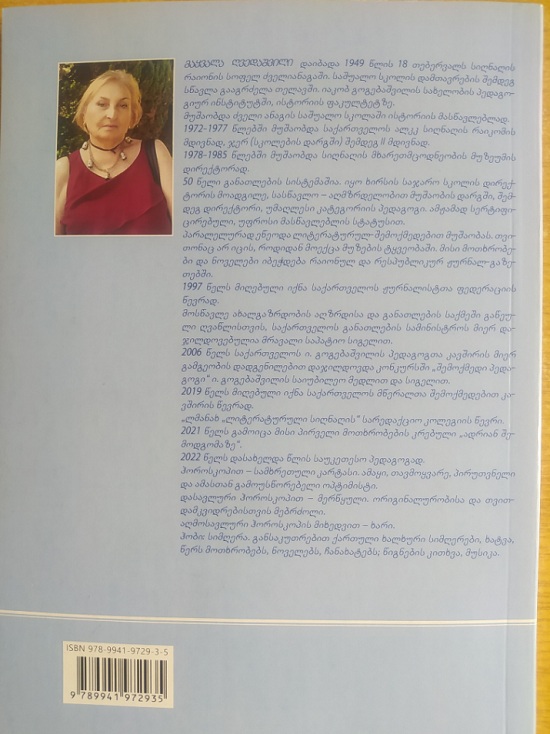 მაყვალა ღვედაშვილი დაიბადა 1949 წლის 18 თებერვალს სიღნაღის
რაიონის სოფელ ძველიანაგაში. საშუალო სკოლის დამთავრების შემდეგ
სწავლა გააგრძელა თელავში. იაკობ გოგებაშვილის სახელობის პედაგო-
გიურ ინსტიტუტში, ისტორიის ფაკულტეტზე.
მუშაობდა ძველი ანაგის საშუალო სკოლაში ისტორიის მასწავლებლად.
1972-1977 წლებში მუშაობდა საქართველოს ალკკ სიღნაღის რაიკომის
მდივნად, ჯერ (სკოლების დარგში) შემდეგ II მდივნად.
1978-1985 წლებში მუშაობდა სიღნაღის მხარეთმცოდნეობის მუზეუმის
დირექტორად.
50 წელი განათლების სისტემაშია. იყო ხირსის საჯარო სკოლის დირექ-
ტორის მოადგილე, სასწავლო – აღმზრდელობით მუშაობის დარგში, შემ-
დეგ დირექტორი, უმაღლესი კატეგორიის პედაგოგი. ამჟამად სერტიფი-
ცირებული, უფროსი მასწავლებლის სტატუსით.
პარალელურად ეწეოდა ლიტერატურულ შემოქმედებით მუშაობას. თვი-
თონაც არ იცის, როდიდან მოექცა მუზების ტყვეობაში. მისი მოთხრობე-
ბი და ნოველები იბეჭდება რაიონულ და რესპუბლიკურ ჟურნალ-გაზე-
თებში.
1997 წელს მიღებული იქნა საქართველოს ჟურნალისტთა ფედერაციის
წევრად.
მოსწავლე ახალგაზრდობის აღზრდისა და განათლების საქმეში გაწეუ-
ლი ღვაწლისთვის, საქართველოს განათლების სამინისტროს მიერ და-
ჯილდოვებულია მრავალი საპატიო სიგელით.
2006 წელს საქართველოს ი. გოგებაშვილის პედაგოგთა კავშირის მიერ
გამგეობის დადგენილებით დაჯილდოვდა კონკურსში „შემოქმედი პედა-
გოგი“ ი. გოგებაშვილის საიუბილეო მედლით და სიგელით.
2019 წელს მიღებული იქნა საქართველოს მწერალთა შემოქმედებით კა-
ვშირის წევრად.
„ლმანახ „ლიტერატურული სიღნაღის“ სარედაქციო კოლეგიის წევრი.
2021 წელს გამოიცა მისი პირველი მოთხრობების კრებული „ადრიან შე-
მოდგომაზე“.
2022 წელს დასახელდა წლის საუკეთესო პედაგოგად.
ჰოროსკოპით – სამხრეთული კარტასი. ამაყი, თავმოყვარე, პირუთვნელი
და ამასთან გამოუსწორებელი ოპტიმისტი.
დასავლური ჰოროსკოპით – მერწყული. ორიგინალურობისა და თვით-
დამკვიდრებისთვის მებრძოლი.
აღმოსავლური ჰოროსკოპის მიხედვით – ხარი.
ჰობი: სიმღერა. განსაკუთრებით ქართული ხალხური სიმღერები, ხატვა,
წერს მოთხრობებს, ნოველებს, ჩანახატებს; წიგნების კითხვა, მუსიკა.
ISBN 978-9941-9729-3-5
9 789941 972935